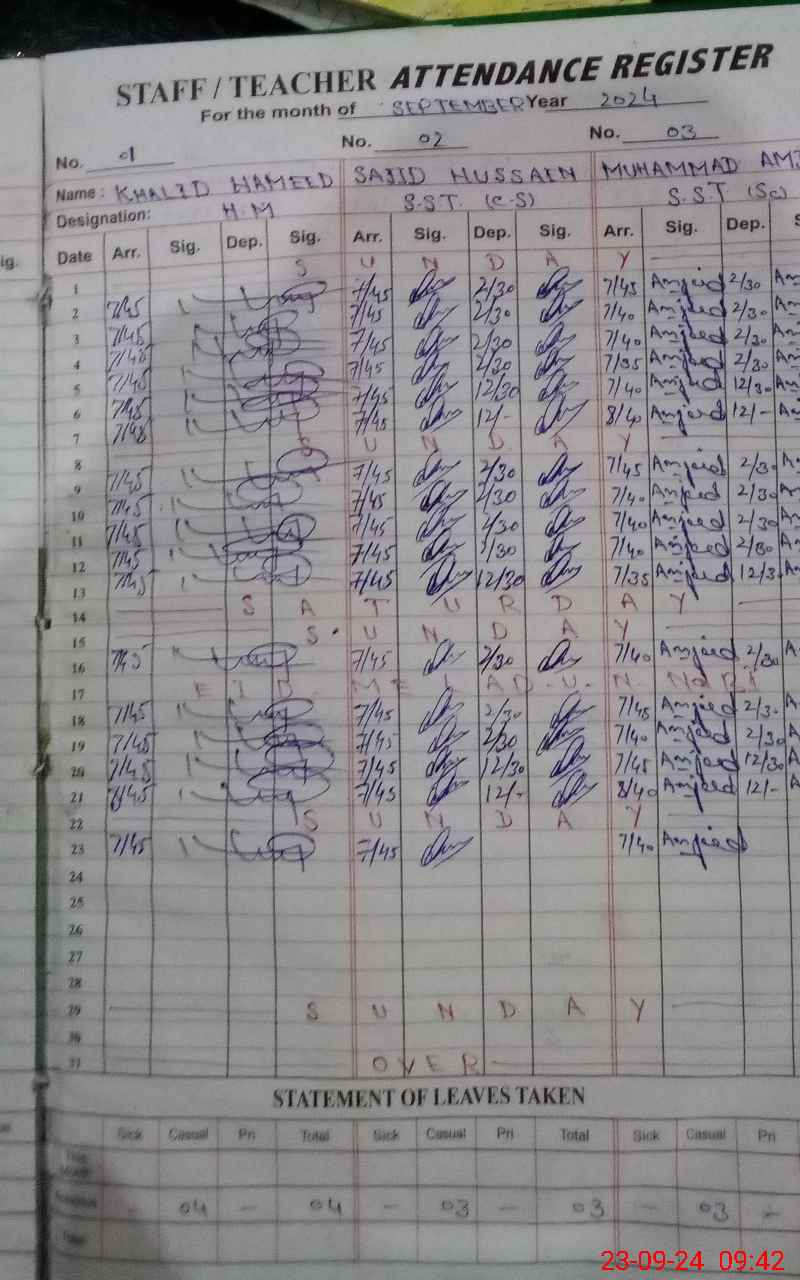 STAFF / TEACHER ATTENDANCE REGISTER
For the month of SEPTEMBER Year 2024
No. 01 No. 02 No. 03
Name: KHALID HAMEED SAJID HUSSAIN MUHAMMAD
Designation: H.M S.S.T. (C-S) S.S.T (Sc)
ig. Date Arr. Sig. Dep. Sig. Arr. Sig. Dep. Sig. Arr. Sig. Dep. S
1 S U N D A Y
2 7/45 7/45 2/30 7/45 Amjied 2/30
3 7/45 7/45 2/30 7/40 Amjied 2/30
4 7/45 7/45 2/30 7/40 Amjied 2/30
5 7/45 7/45 2/30 7/35 Amjied 2/30
6 7/45 7/45 12/30 7/40 Amjied 12/30
7 7/45 7/45 12/- 8/40 Amjied 12/-
8 S U N D A Y
9 7/45 7/45 2/30 7/45 Amjied 2/30
10 7/45 7/45 2/30 7/40 Amjied 2/30
11 7/45 7/45 2/30 7/40 Amjied 2/30
12 7/45 7/45 2/30 7/40 Amjied 2/30
13 7/45 7/45 12/30 7/35 Amjied 12/3
14 S A T U R D A Y
15 S U N D A Y
16 7/45 7/45 2/30 7/40 Amjied 2/30
17 EID MEILAD-U-N-NABI
18 7/45 7/45 2/30 7/45 Amjied 2/30
19 7/45 7/45 2/30 7/40 Amjied 2/30
20 7/45 7/45 12/30 7/45 Amjied 12/30
21 7/45 12/- 8/40 Amjied 12/-
22 S U N D A Y
23 7/45 7/45 7/40 Amjied
24
25
26
27
28
29 S U N D A Y
30
31 OVER
STATEMENT OF LEAVES TAKEN
Sick Casual Pri Total Sick Casual Pri Total Sick Casual Pri
This Month
04 - 04 - 03 - 03 - 03 -
23-09-24 09:42